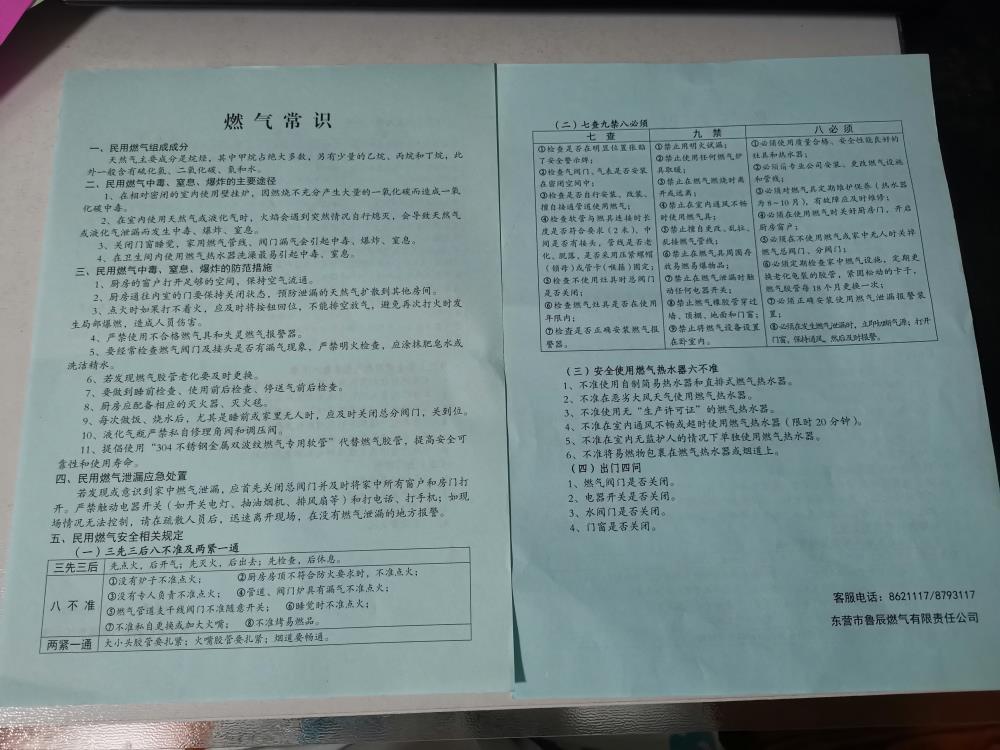 燃气常识
一、民用燃气组成成分
天然气主要成分是烷烃，其中甲烷占绝大多数，另有少量的乙烷、丙烷和丁烷，此
外一般含有硫化氢、二氧化碳、氮和水。
二、民用燃气中毒、窒息、爆炸的主要途径
1、在相对密闭的室内使用壁挂炉，因燃烧不充分产生大量的一氧化碳而造成一氧
化碳中毒。
2、在室内使用天然气或液化气时，火焰会遇到突然情况自行熄灭，会导致天然气
或液化气泄漏而发生中毒、爆炸、窒息。
3、关闭门窗睡觉，家用燃气管线、阀门漏气会引起中毒、爆炸、窒息。
4、在卫生间内使用燃气热水器洗澡最易引起中毒、窒息。
三、民用燃气中毒、窒息、爆炸的防范措施
1、厨房的窗户打开足够的空间，保持空气流通。
2、厨房通往内室的门要保持关闭状态，预防泄漏的天然气扩散到其他房间。
3、点火时如果打不着火，应及时将按钮回位，不能排空放气，避免再次打火时发
生局部爆燃，造成人员伤害。
4、严禁使用不合格燃气具和失灵燃气报警器。
5、要经常检查燃气阀门及接头是否有漏气现象，严禁明火检查，应涂抹肥皂水或
洗洁精水。
6、若发现燃气胶管老化要及时更换。
7、要做到睡前检查、使用前后检查、停送气前后检查。
8、厨房应配备相应的灭火器、灭火毯。
9、每次做饭、烧水后，尤其是睡前或家里无人时，应及时关闭总分阀门，关到位。
10、液化气瓶严禁私自修理角阀和调压阀。
11、提倡使用“304不锈钢金属双波纹燃气专用软管”代替燃气胶管，提高安全可
靠性和使用寿命。
四、民用燃气泄漏应急处置
若发现或意识到家中燃气泄漏，应首先关闭总阀门并及时将家中所有窗户和房门打
开。严禁触动电器开关（如开关电灯、抽油烟机、排风扇等）和打电话、打手机；如现
场情况无法控制，请在疏散人员后，迅速离开现场，在没有燃气泄漏的地方报警。
五、民用燃气安全相关规定
（一）三先三后八不准及两紧一通
三先三后 先点火，后开气；先灭火，后出去；先检查，后休息。
八不准 ①没有炉子不准点火； ②厨房房顶不符合防火要求时，不准点火；
③没有专人负责不准点火； ④管道、阀门炉具有漏气不准点火；
⑤燃气管道支干线阀门不准随意开关； ⑥睡觉时不准点火；
⑦不准私自更换或加大火嘴； ⑧不准烤易燃品。
两紧一通 大小头胶管要扎紧；火嘴胶管要扎紧；烟道要畅通。
（二）七查九禁八必须
七查
①检查是否在明显位置张贴
了安全警示牌；
②检查气阀门、气表是否安装
在密闭空间中；
③检查是否自行安装、改装、
擅自接通管道使用燃气；
④检查软管与燃具连接时长
度是否符合要求（2米）、中
间是否有接头，管线是否老
化、脱落，是否采用压紧螺帽
（锁母）或管卡（喉箍）固定；
⑤检查不使用灶具时总阀门
是否关闭；
⑥检查燃气灶具是否在使用
年限内；
⑦检查是否正确安装燃气报
警器。
九禁
①禁止用明火试漏；
②禁止使用任何燃气炉
具取暖；
③禁止在燃气燃烧时离
开或远离；
④禁止在室内通风不畅
时使用燃气具；
⑤禁止擅自更改、乱拉、
乱接燃气管线；
⑥禁止在燃气具周围存
放易燃易爆物品；
⑦禁止在燃气泄漏时触
动任何电器开关；
⑧禁止燃气橡胶管穿过
墙、顶棚、地面和门窗；
⑨禁止将燃气设备设置
在卧室内。
八必须
①必须使用质量合格、安全性能良好的
灶具和热水器；
②必须请专业公司安装、更改燃气设施
和管线；
③必须对燃气具定期维护保养（热水器
为8～10月），有故障应及时维修；
④必须在使用燃气时关好厨房门，开启
厨房窗户；
⑤必须在不使用燃气或家中无人时关掉
燃气总阀门、分阀门；
⑥必须定期检查家中燃气设施，定期更
换老化龟裂的胶管，紧固松动的卡子，
燃气胶管每18个月更换一次；
⑦必须正确安装使用燃气泄漏报警装
置；
⑧必须在发生燃气泄漏时，立即切断气源；打开
门窗，保持通风，然后及时报警。
（三）安全使用燃气热水器六不准
1、不准使用自制简易热水器和直排式燃气热水器。
2、不准在恶劣大风天气使用燃气热水器。
3、不准使用无“生产许可证”的燃气热水器。
4、不准在室内通风不畅或超时使用燃气热水器（限时20分钟）。
5、不准在室内无监护人的情况下单独使用燃气热水器。
6、不准将易燃物包裹在燃气热水器或烟道上。
（四）出门四问
1、燃气阀门是否关闭。
2、电器开关是否关闭。
3、水阀门是否关闭。
4、门窗是否关闭。
客服电话：8621117/8793117
东营市鲁辰燃气有限责任公司